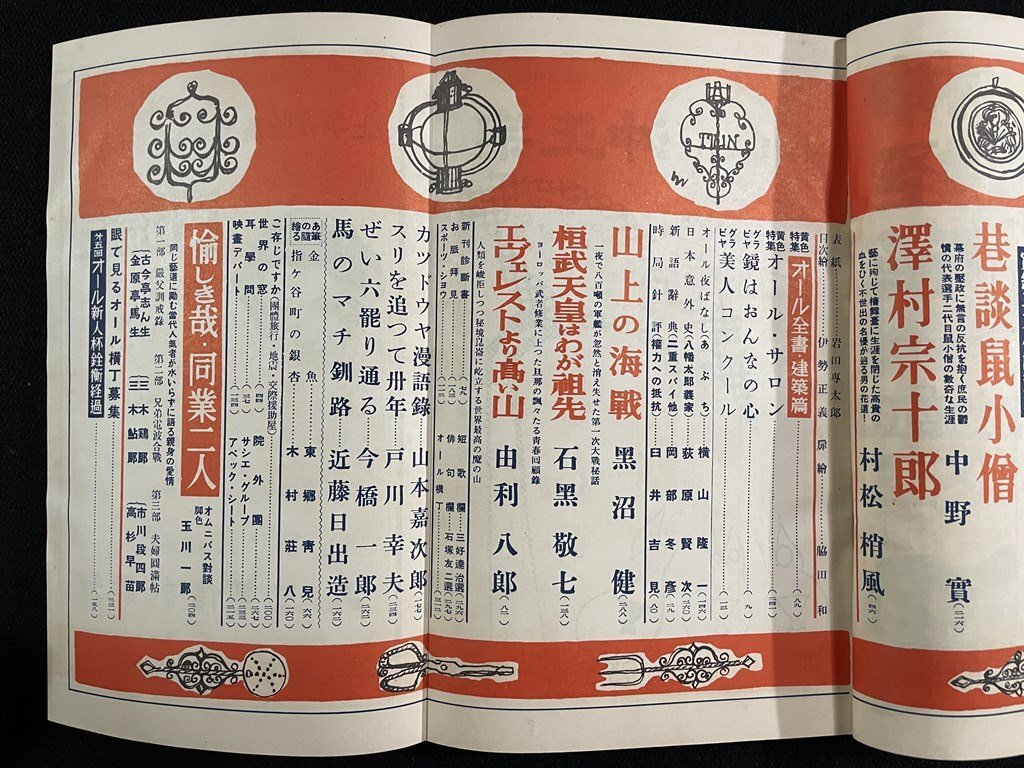 巷談鼠小僧
幕府の堅政に無言の反抗を抱く庶民の鬱
憤の代表選手二代目鼠小僧の数奇な生涯
中野實
澤村宗十郎
藝に殉じて檜舞臺に生涯を閉じた高貴の
血をひく不世出の名優が辿る男の花道!
村松梢風
表紙……岩田専太郎
目次繪……伊勢正義 扉繪……脇田和
黄色特集 オール全書・建築篇
黄色特集 オール・サロン
グラビヤ 鏡はおんなの心
グラビヤ 美人コンクール
オール夜ばなし(あぶち) 横山隆一
日本意外史(八幡太郎義家) 荻原賢次
新語辭典(二重スパイ他) 岡部冬彦
時局針評(權力への抵抗) 臼井吉見
山上の海戰
一夜で八百噸の軍艦が忽然と消え失せた第一次大戰秘話
黑沼健
桓武天皇はわが祖先
ヨーロッパ武者修業に上つた旦那の飄々たる青春回顧錄
石黑敬七
エヴェレストより髙い山
人類を峻拒しつつ秘境崑崙に屹立する世界最高の魔の山
由利八郎
新刊診斷書
お脈拜見
スポーツ・ショウ
短歌欄……三好達治選
俳句欄……石塚友二選
オール横丁
カツドウヤ漫語錄……山本嘉次郎
スリを追つて卅年……戸川幸夫
ぜい六罷り通る……今橋一郎
馬のマチ釧路……近藤日出造
あの繪筆る隨 金魚……東郷青兒
指ケ谷町の銀杏……木村莊八
ご存じですか(團體旅行・地震・交際援助屋)
世界の窓……院外團
耳學問……サシエ・グループ
映畫デパート……アベック・シート
愉しき哉・同業二人
オムニバス對談
脚色 玉川一郎
同じ藝道に勵む當代人氣者が水いらずに語る親身の愛情
第一部 嚴父訓戒錄 第二部 兄弟電波合戰 第三部 夫婦圓滿帖
古今亭志ん生
金原亭馬生
三木鷄郎
三木鮎郎
市川段四郎
高杉早苗
眼で見るオール横丁募集
オ五回 オール新人杯銓衡經過